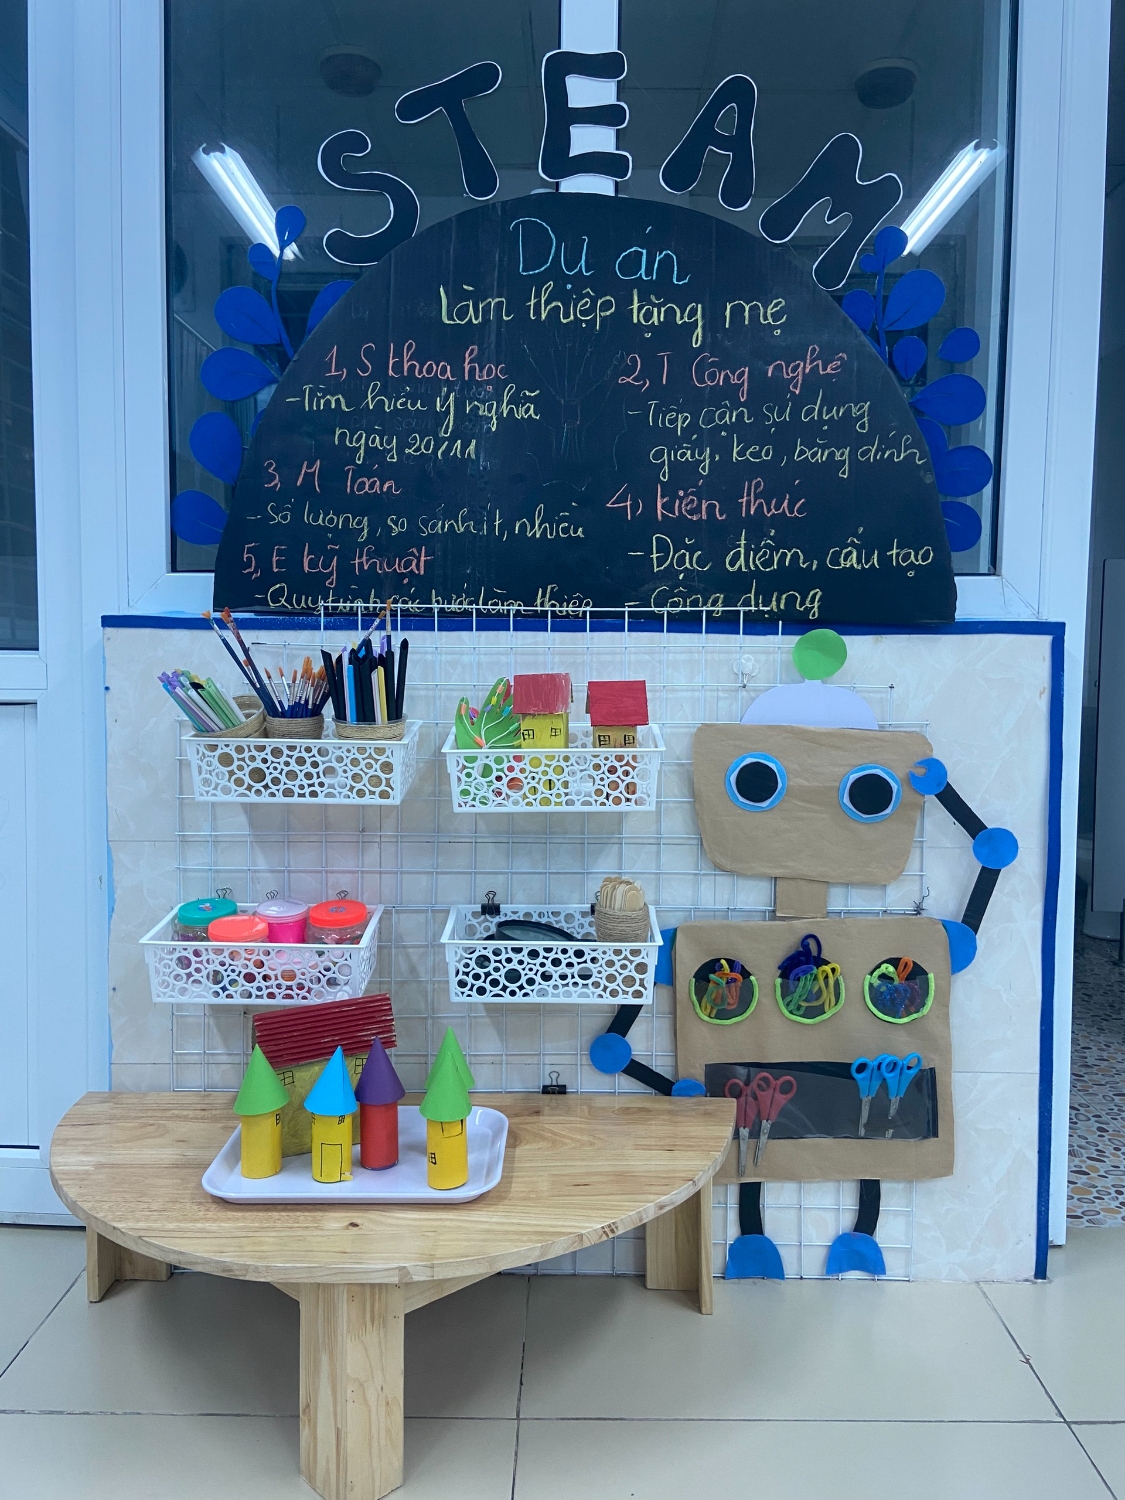 STEAM
Dự án
Làm thiệp tặng mẹ
1, S khoa học
-Tìm hiểu ý nghĩa
ngày 20/11
2, T Công nghệ
-Tiếp cận sử dụng
giấy, keo, băng dính
3, M Toán
-Số lượng, so sánh ít, nhiều
4) kiến thức
-Đặc điểm, cấu tạo
- Công dụng
5, E kỹ thuật
-Quy trình các bước làm thiệp